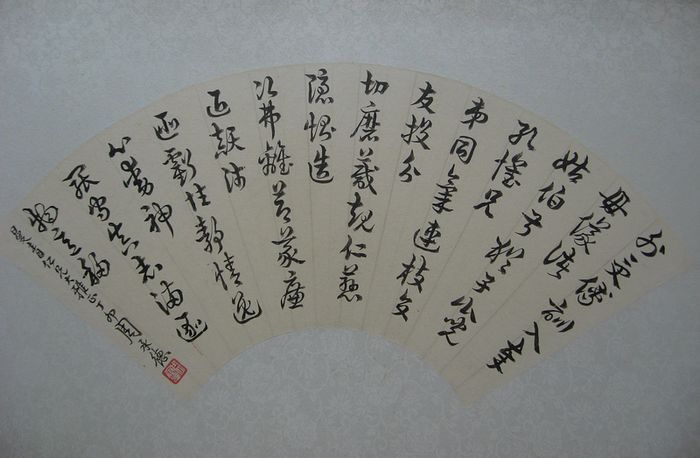 外受傅訓入奉
母儀諸
姑伯叔猶子比兒
孔懷兄
弟同氣連枝交
友投分
切磨箴規仁慈
隱惻造
次弗離節義廉
退顛沛
匪虧性靜情逸
心動神
疲守真志滿逐
物意移
仁兄大雅正 丁卯周承德